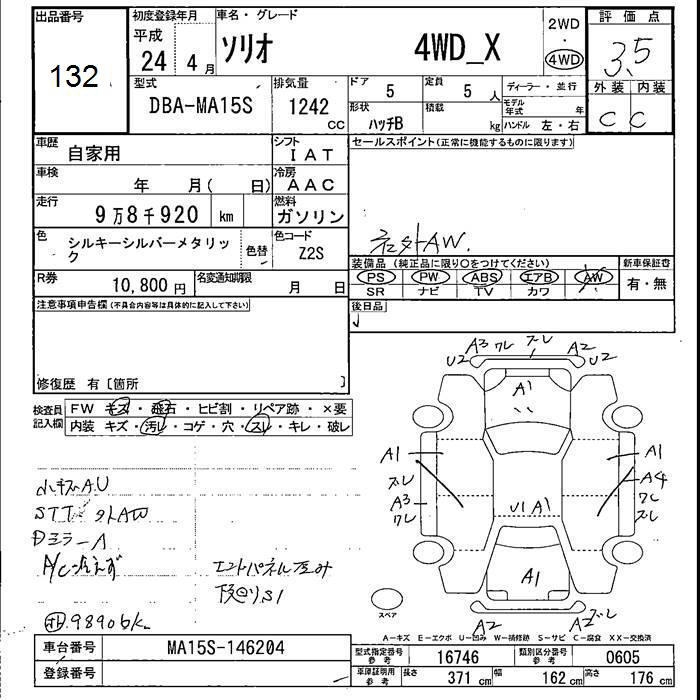 出品番号
132
初度登録年月
平成
24年 4月
車名・グレード
ソリオ 4WD_X
2WD
・
4WD
評価点
3.5
型式
DBA-MA15S
排気量
1242
CC
ドア
5
定員
5 人
ディーラー・並行
形状
ハッチB
積載
kg
モデル年式 年
ハンドル 左・右
外装 内装
C C
車歴
自家用
シフト
IAT
セールスポイント(正常に機能するものに限ります)
車検
年 月( 日)
冷房
AAC
走行
9万8千920 km
燃料
ガソリン
色
シルキーシルバーメタリック
色替
色コード
Z2S
社外AW.
装備品(純正品に限り○をつけてください)
新車保証書
PS PW ABS エアB AW
SR ナビ TV カワ
有・無
R券
10,800 円
名変通知期限
月 日
後日品
注意事項申告欄(不具合内容等は具体的に記入して下さい)
修復歴 有〔箇所 〕
検査員記入欄
FW キズ・飛石・ヒビ割・リペア跡・×要
内装 キズ・汚レ・コゲ・穴・スレ・キレ・破レ
小キズA.U
外AW
A/C
エンドパネル歪み
98906k
U2 A3 ワレ ズレ A2 U2
A1
A1
ズレ
A3
ワレ
A1
A4
ワレ
ズレ
U1 A1
A1
A2
A2 ズレ
スペア
A—キズ E—エクボ U—凹み W—補修跡 S—サビ C—腐食 XX—交換済
車台番号
MA15S-146204
登録番号
型式指定番号参考
16746
類別区分番号参考
0605
車庫証明用参考
長さ 371 cm
幅 162 cm
高さ 176 cm